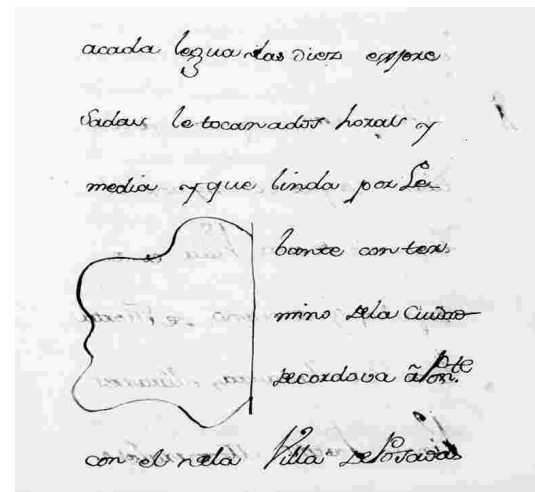 acada legua las diez expre
sadas le tocan a dos horas y
media y que linda por Le-
bante con ter
mino dela Ciudad
de cordova a Pon.te
con el de la Villa de Posadas